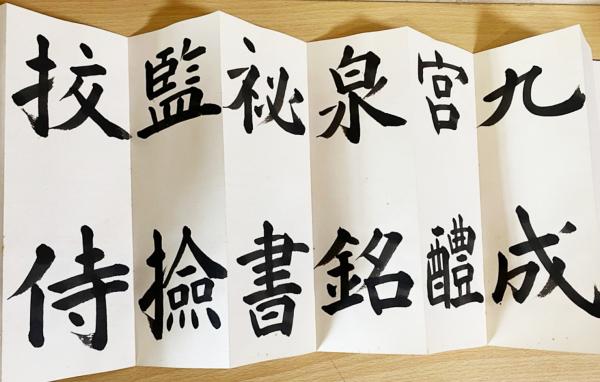 九成
宮醴
泉銘
祕書
監撿
挍侍